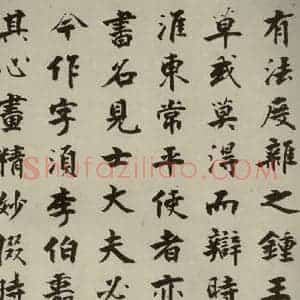 有法度離之鍾王
草或莫得而辯時
淮東常平使者亦
書名見士大夫必
今作字須李伯
其心畫精妙時
Shufaziliao.com